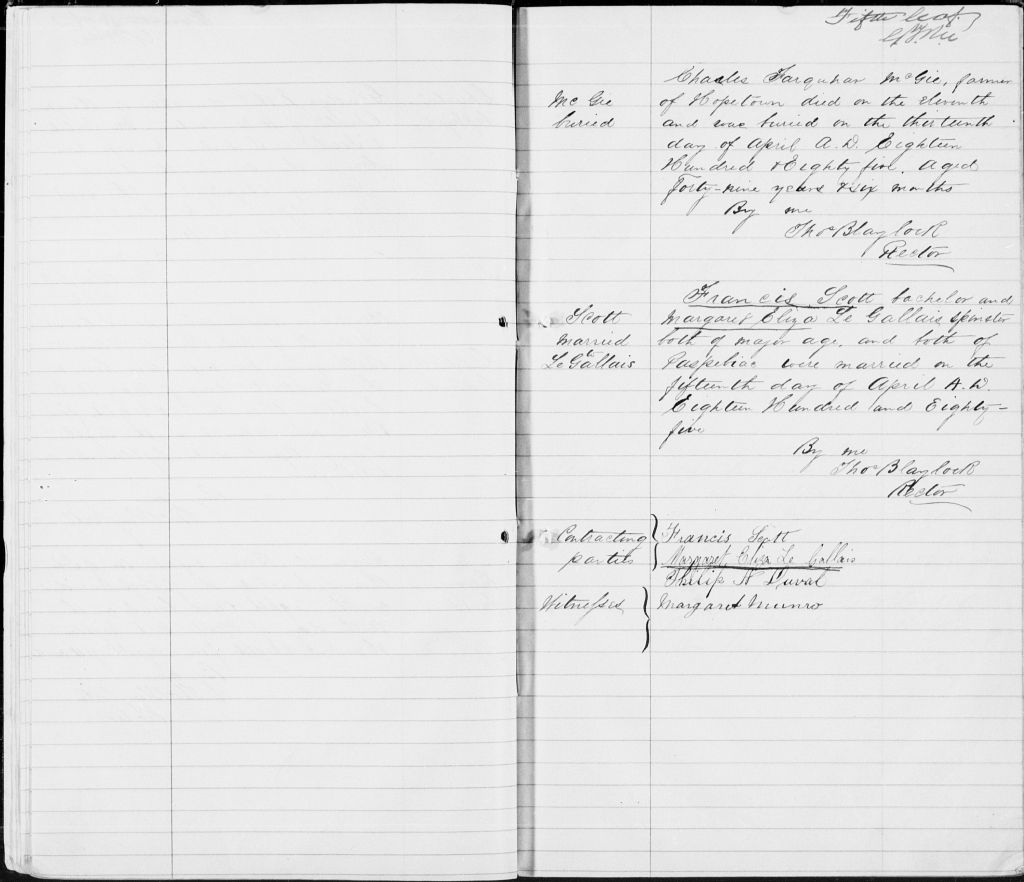 Fifth leaf
Charles Farquhar McGie, farmer
Mc Gie
buried
of Hopetown died on the eleventh
and was buried on the thirteenth
day of April A.D. Eighteen
Hundred & Eighty five. Aged
Forty-nine years & six months
By me
Thos Blaylock
Rector
Scott
married
Le Gallais
Francis Scott bachelor and
Margaret Eliza Le Gallais spinster
both of major age, and both of
Paspebiac were married on the
fifteenth day of April A.D.
Eighteen Hundred and Eighty-
five
By me
Thos Blaylock
Rector
Contracting
parties
Francis Scott
Margaret Eliza Le Gallais
Witnesses
Philip N Duval
Margaret Munro